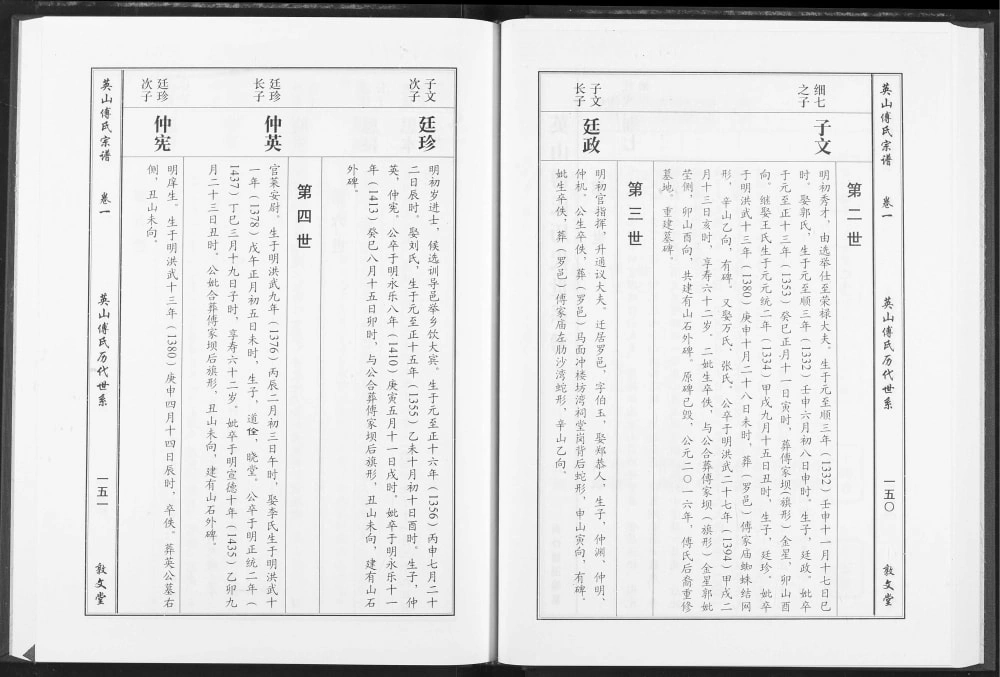 英山傅氏宗谱
卷一
英山傅氏历代世系
一五〇
敦文堂
第二世
细七
之子
子文
明初秀才，由选举仕至荣禄大夫。生于元至顺三年（1332）壬申十一月十七日巳
时。娶郭氏，生于元至顺三年（1332）壬申六月初八日申时。生子，廷政。妣卒
于元至正十三年（1353）癸巳正月十一日寅时，葬傅家坝(旗形）金星，卯山酉
向。继娶王氏生于元元统二年（1334）甲戌九月十五日丑时，生子，廷珍。妣卒
于明洪武十三年（1380）庚申十月二十八日未时，葬（罗邑）傅家庙蜘蛛结网
形，辛山乙向，有碑。又娶万氏、张氏。公卒于明洪武二十七年（1394）甲戌二
月十三日亥时，享寿六十二岁。二妣生卒佚，与公合葬傅家坝（旗形）金星郭妣
茔侧，卯山酉向，共建有山石外碑。原碑已毁，公元二〇一六年，傅氏后裔重修
墓地，重建墓碑。
第三世
子文
长子
廷政
明初官指挥，升通议大夫。迁居罗邑，字伯玉，娶郑恭人，生子，仲渊、仲明、
仲机。公生卒佚，葬（罗邑）马面冲楼坊湾祠堂岗背后蛇形，申山寅向，有碑。
妣生卒佚，葬（罗邑）傅家庙左肋沙湾蛇形，辛山乙向。
子文
次子
廷珍
明初岁进士，候选训导邑举乡饮大宾。生于元至正十六年（1356）丙申七月二十
二日辰时。娶刘氏，生于元至正十五年（1355）乙未十月初十日酉时。生子，仲
英、仲宪。公卒于明永乐八年（1410）庚寅五月十一日戌时。妣卒于明永乐十一
年（1413）癸巳八月十五日卯时，与公合葬傅家坝后旗形，丑山未向，建有山石
外碑。
第四世
廷珍
长子
仲英
官莱安尉。生于明洪武九年（1376）丙辰二月初三日午时，娶李氏生于明洪武十
一年（1378）戊午正月初五日未时，生子，道佺、晓堂。公卒于明正统二年（
1437）丁巳三月十九日子时，享寿六十二岁。妣卒于明宣德十年（1435）乙卯九
月二十三日丑时。公妣合葬傅家坝后旗形，丑山未向，建有山石外碑。
廷珍
次子
仲宪
明庠生。生于明洪武十三年（1380）庚申四月十四日辰时，卒佚。葬英公墓右
侧，丑山未向。
英山傅氏宗谱
卷一
英山傅氏历代世系
一五一
敦文堂